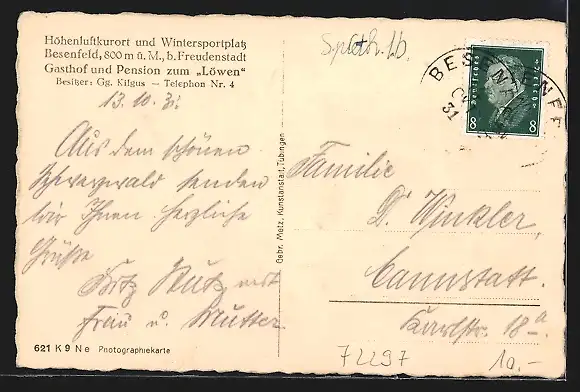 Höhenluftkurort und Wintersportplatz
Besenfeld, 800 m ü. M., b. Freudenstadt
Gasthof und Pension zum „Löwen“
Besitzer: Gg. Kilgus — Telephon Nr. 4
13.10.31.
Aus dem schönen
Schwarzwald senden
wir Ihnen herzliche
Grüße
Fritz Kutz mit
Frau u. Mutter.
621 K 9 Ne Photographiekarte
Gebr. Metz, Kunstanstalt, Tübingen
BESENFELD
31
Deutsches Reich
8 8
Familie
Dr. Winkler,
Cannstatt.
Karlstr. 18a.
72297
10.-